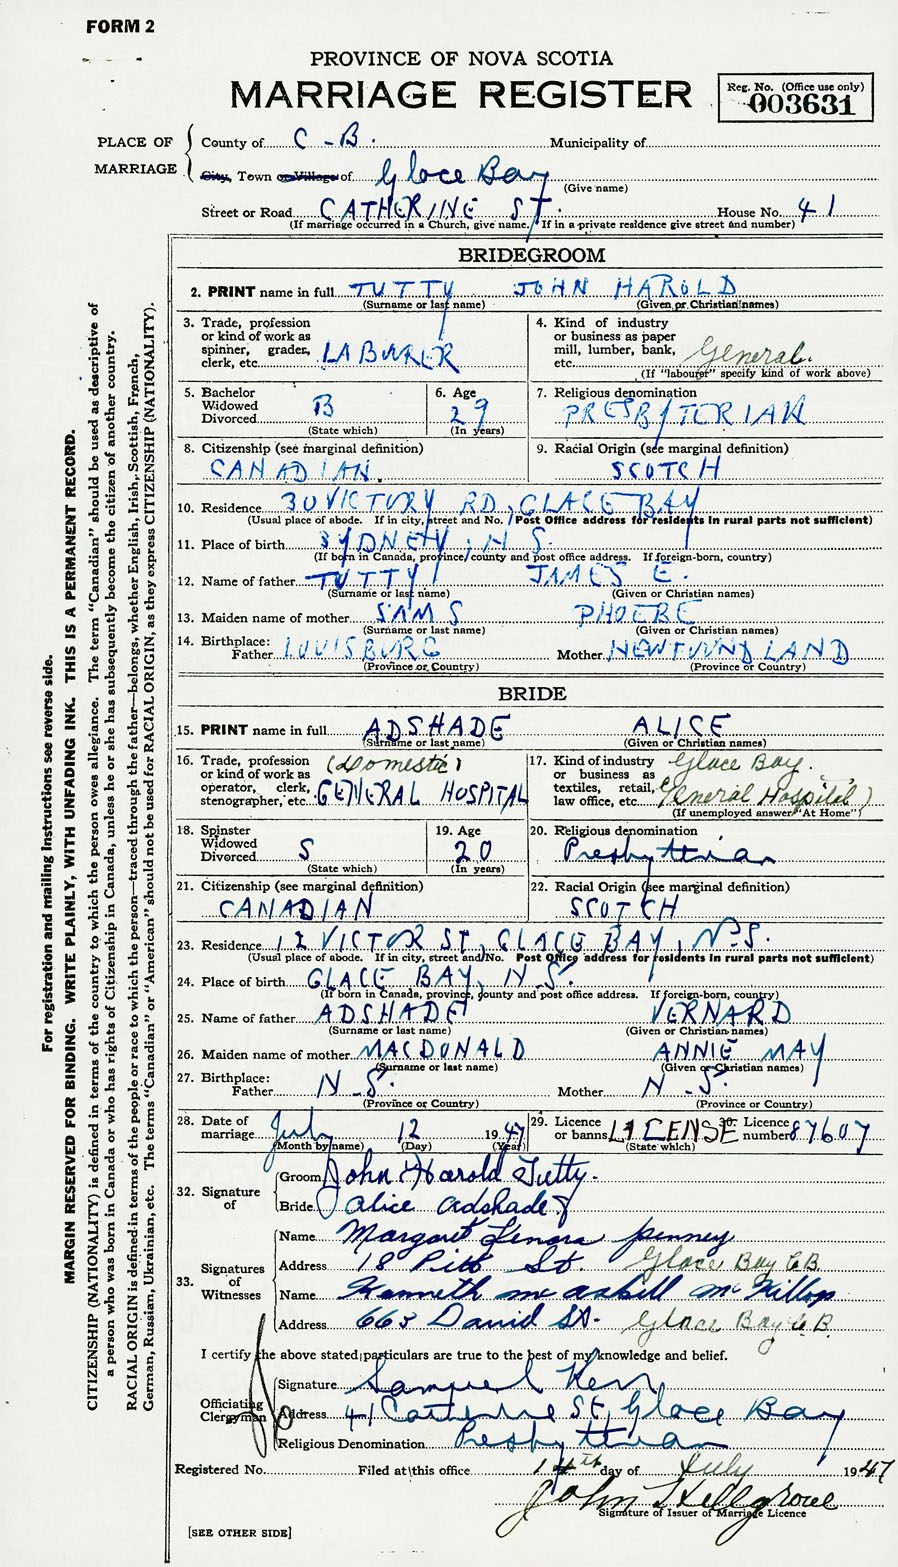 FORM 2
PROVINCE OF NOVA SCOTIA
MARRIAGE REGISTER
Reg. No. (Office use only)
003631
PLACE OF MARRIAGE
County of C-B. Municipality of
City, Town or Village of Glace Bay
(Give name)
Street or Road CATHERINE ST. House No. 41
(If marriage occurred in a Church, give name. If in a private residence give street and number)
BRIDEGROOM
2. PRINT name in full TUTTY JOHN HAROLD
(Surname or last name) (Given or Christian names)
3. Trade, profession or kind of work as spinner, grader, clerk, etc. LABURER
4. Kind of industry or business as paper mill, lumber, bank, etc. General.
(If "labourer" specify kind of work above)
5. Bachelor Widowed Divorced B
(State which)
6. Age 29
(In years)
7. Religious denomination
PRESBYTERIAN
8. Citizenship (see marginal definition)
CANADIAN.
9. Racial Origin (see marginal definition)
SCOTCH
10. Residence 30 VICTURY RD, GLACE BAY
(Usual place of abode. If in city, street and No. Post Office address for residents in rural parts not sufficient)
11. Place of birth SYDNEY, N.S.
(If born in Canada, province, county and post office address. If foreign-born, country)
12. Name of father TUTTY JAMES E.
(Surname or last name) (Given or Christian names)
13. Maiden name of mother SAMS PHOEBE
(Surname or last name) (Given or Christian names)
14. Birthplace:
Father LOUISBURG Mother NEWFOUNDLAND
(Province or Country) (Province or Country)
BRIDE
15. PRINT name in full ADSHADE ALICE
(Surname or last name) (Given or Christian names)
16. Trade, profession or kind of work as operator, clerk, stenographer, etc. (Domestic) GENERAL HOSPITAL
17. Kind of industry or business as textiles, retail, law office, etc. Glace Bay. (General Hospital)
(If unemployed answer "At Home")
18. Spinster Widowed Divorced S
(State which)
19. Age 20
(In years)
20. Religious denomination
Presbyterian
21. Citizenship (see marginal definition)
CANADIAN
22. Racial Origin (see marginal definition)
SCOTCH
23. Residence 12 VICTOR ST, GLACE BAY, N.S.
(Usual place of abode. If in city, street and No. Post Office address for residents in rural parts not sufficient)
24. Place of birth GLACE BAY, N.S.
(If born in Canada, province, county and post office address. If foreign-born, country)
25. Name of father ADSHADE VERNARD
(Surname or last name) (Given or Christian names)
26. Maiden name of mother MACDONALD ANNIE MAY
(Surname or last name) (Given or Christian names)
27. Birthplace:
Father N.S. Mother N.S.
(Province or Country) (Province or Country)
28. Date of marriage July 12 1947
(Month by name) (Day) (Year)
29. Licence or banns LICENSE
(State which)
30. Licence number 87607
32. Signature of
Groom John Harold Tutty.
Bride Alice Adshade
33. Signatures of Witnesses
Name Margaret Lenora Penney
Address 18 Pitt St. Glace Bay C.B.
Name Kenneth McAskill McKillop
Address 663 David St. Glace Bay C.B.
I certify the above stated particulars are true to the best of my knowledge and belief.
Officiating Clergyman
Signature Samuel Kerr
Address 41 Catherine St, Glace Bay
Religious Denomination Presbyterian
Registered No. Filed at this office 14th day of July 1947
John Hellgrove
Signature of Issuer of Marriage Licence
[SEE OTHER SIDE]
For registration and mailing instructions see reverse side.
MARGIN RESERVED FOR BINDING. WRITE PLAINLY, WITH UNFADING INK. THIS IS A PERMANENT RECORD.
CITIZENSHIP (NATIONALITY) is defined in terms of the country to which the person owes allegiance. The term "Canadian" should be used as descriptive of
a person who was born in Canada or who has rights of Citizenship in Canada, unless he or she has subsequently become the citizen of another country.
RACIAL ORIGIN is defined in terms of the people or race to which the person—traced through the father—belongs, whether English, Irish, Scottish, French,
German, Russian, Ukrainian, etc. The terms "Canadian" or "American" should not be used for RACIAL ORIGIN, as they express CITIZENSHIP (NATIONALITY).